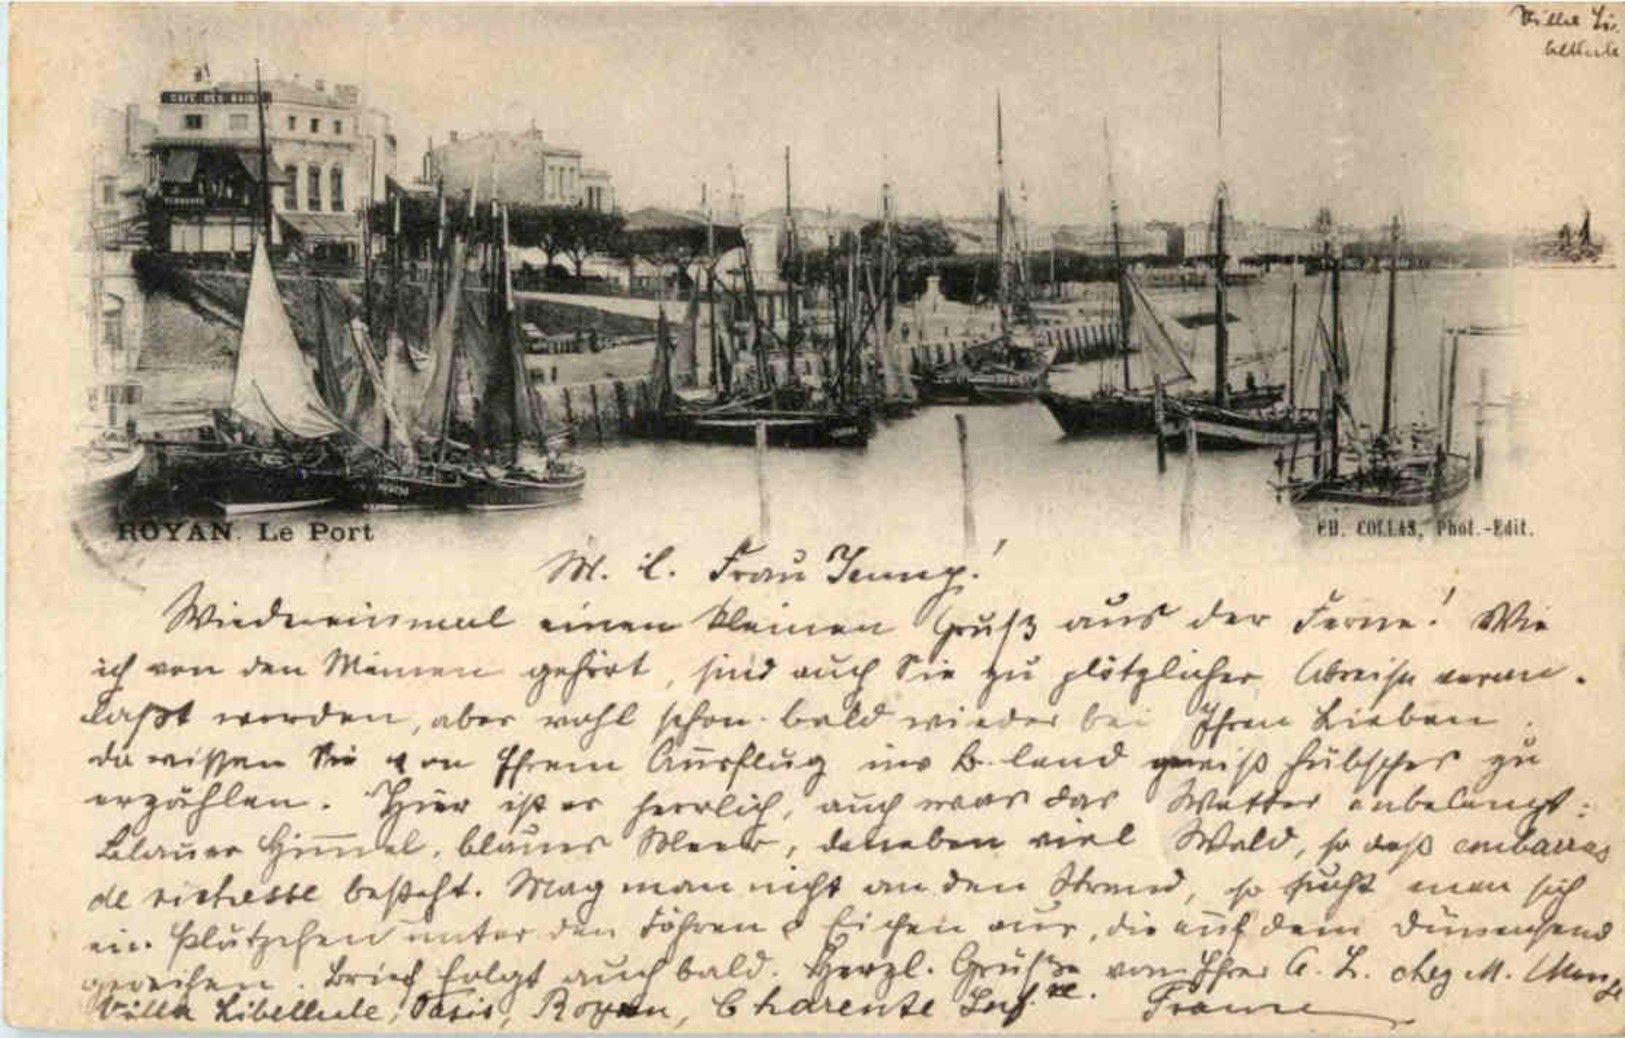 Villa Li-
bellule
CAFÉ DES BAINS
ROYAN. Le Port
CH. COLLAS, Phot.-Edit.
M. l. Frau Jenny!
Wiedereinmal einen kleinen Gruß aus der Ferne! Wie
ich von den Meinen gehört, sind auch Sie zu plötzlicher Abreise veran-
laßt worden, aber wohl schon bald wieder bei Ihren Lieben.
da wissen Sie von Ihrem Ausflug ins B. land gewiß Hübsches zu
erzählen. Hier ist es herrlich, auch was das Wetter anbelangt:
Blauer Himmel, blaues Meer, daneben viel Wald, so daß embarras
de richesse besteht. Mag man nicht an den Strand, so sucht man sich
ein Plätzchen unter den Föhren & Eichen aus, die auf dem Dünensand
gedeihen. Brief folgt auch bald. Herzl. Grüße von Ihrer A. L. chez M.
Villa Libellule, Oasis, Royan, Charente Infre. France